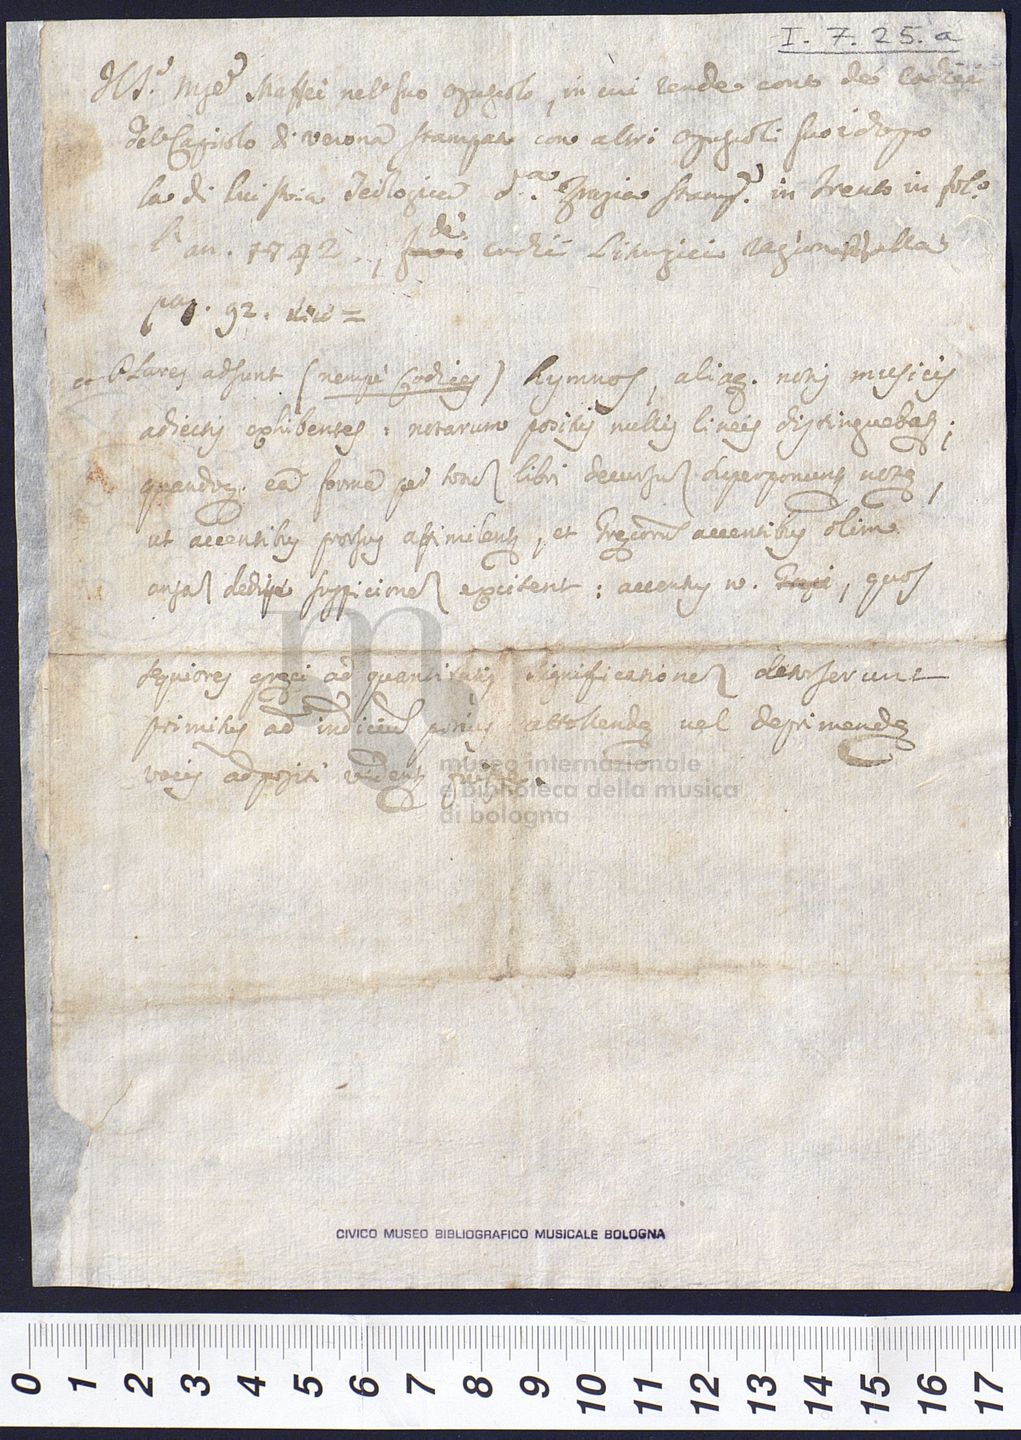 I. 7. 25. a
Il S.r Mse. Maffei nel suo opuscolo, in cui rende conto de Codici
del Capitolo di Verona stampato con altri opuscoli suoi dopo
la di lui Storia Teologica d.a Grazia stamp. in Trento in fol.o
l'an. 1742., de codici Liturgici ragionasi alla
pag. 92. dice =
Plures adsunt (nempe Codices) hymnos, aliaq. notis musicis
adiectis exhibentes: notarum positus nullis lineis distinguebatur;
quandoq. eã formã per totũ libri decursũ superponuntur notæ,
ut accentibus prorsus assimilentur, et Grecorũ accentibus olim
ansã dedisse suspicionẽ excitent: accentus n. , quos
sequiores greci ad quantitatis significationẽ detorserunt
primitus ad indiciũ potius attollendæ vel deprimendæ
vocis adpositi videntur fuisse.
museo internazionale
e biblioteca della musica
di bologna
CIVICO MUSEO BIBLIOGRAFICO MUSICALE BOLOGNA
0 1 2 3 4 5 6 7 8 9 10 11 12 13 14 15 16 17